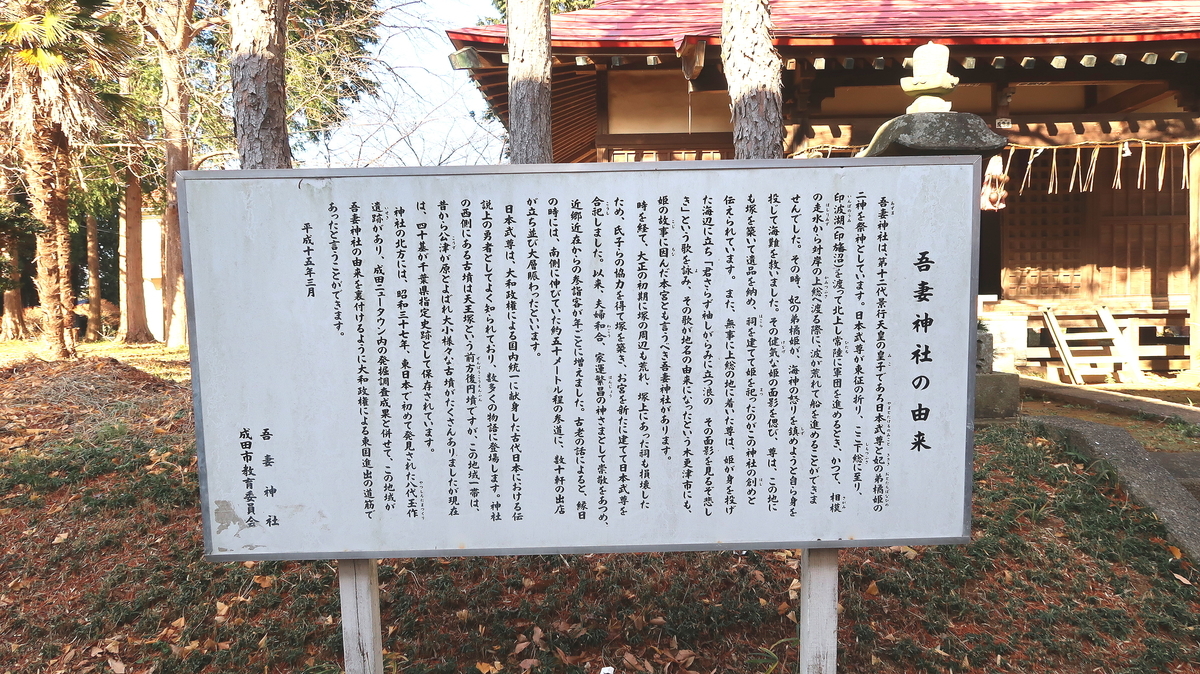 吾妻神社の由来
吾妻神社は第十二代景行天皇の皇子である日本武尊と妃の弟橘姫の
二神を祭神としています。日本武尊が東征の折り、ここ下総に至り、
印波湖(印旛沼)を渡って北上し常陸に軍団を進めるとき、かつて、相模
の走水から対岸の上総へ渡る際に、波が荒れて船を進めることができま
せんでした。その時、妃の弟橘姫が、海神の怒りを鎮めようと自ら身を
投じて海難を救いました。その健気な姫の面影を偲び、尊は、この地に
も塚を築いて遺品を納め、祠を建てて妃を祀ったのがこの神社の創めと
伝えられています。また、無事に上総の地に着いた尊は、姫が身を投げ
た海辺に立ち「君さらず袖しがらみに立つ浪の その面影を見るぞ悲し
き」という歌を詠み、その歌が地名の由来になったという木更津市にも、
姫の故事に因んだ本宮とも言うべき吾妻神社があります。
時を経て、大正の初期に塚の周辺も荒れ、塚上にあった祠も損壊した
ため、氏子らの協力を得て塚を築き、お宮を新たに建てて日本武尊を
合祀しました。以来、夫婦和合、家運繁昌の神さまとして崇敬をあつめ、
近郷近在からの参詣客が年ごとに増えました。古老の話によると、縁日
の時には、南側に伸びていた約五十メートル程の参道に、数十軒の出店
が立ち並び大層賑わったといいます。
日本武尊は、大和政権による国内統一に献身した古代日本における伝
説上の勇者としてよく知られており、数多くの物語に登場します。神社
の西側にある古墳は天王塚という前方後円墳ですが、この地域一帯は、
昔から公津が原とよばれ大小様々な古墳がたくさんありましたが現在
は、四十基が千葉県指定史跡として保存されています。
神社の北方には、昭和三十七年、東日本で初めて発見された八代玉作
遺跡があり、成田ニュータウン内の発掘調査成果と併せて、この地域が
吾妻神社の由来を裏付けるように大和政権による東国進出の道筋で
あったと言うことができます。
平成十五年三月
吾妻神社
成田市教育委員会